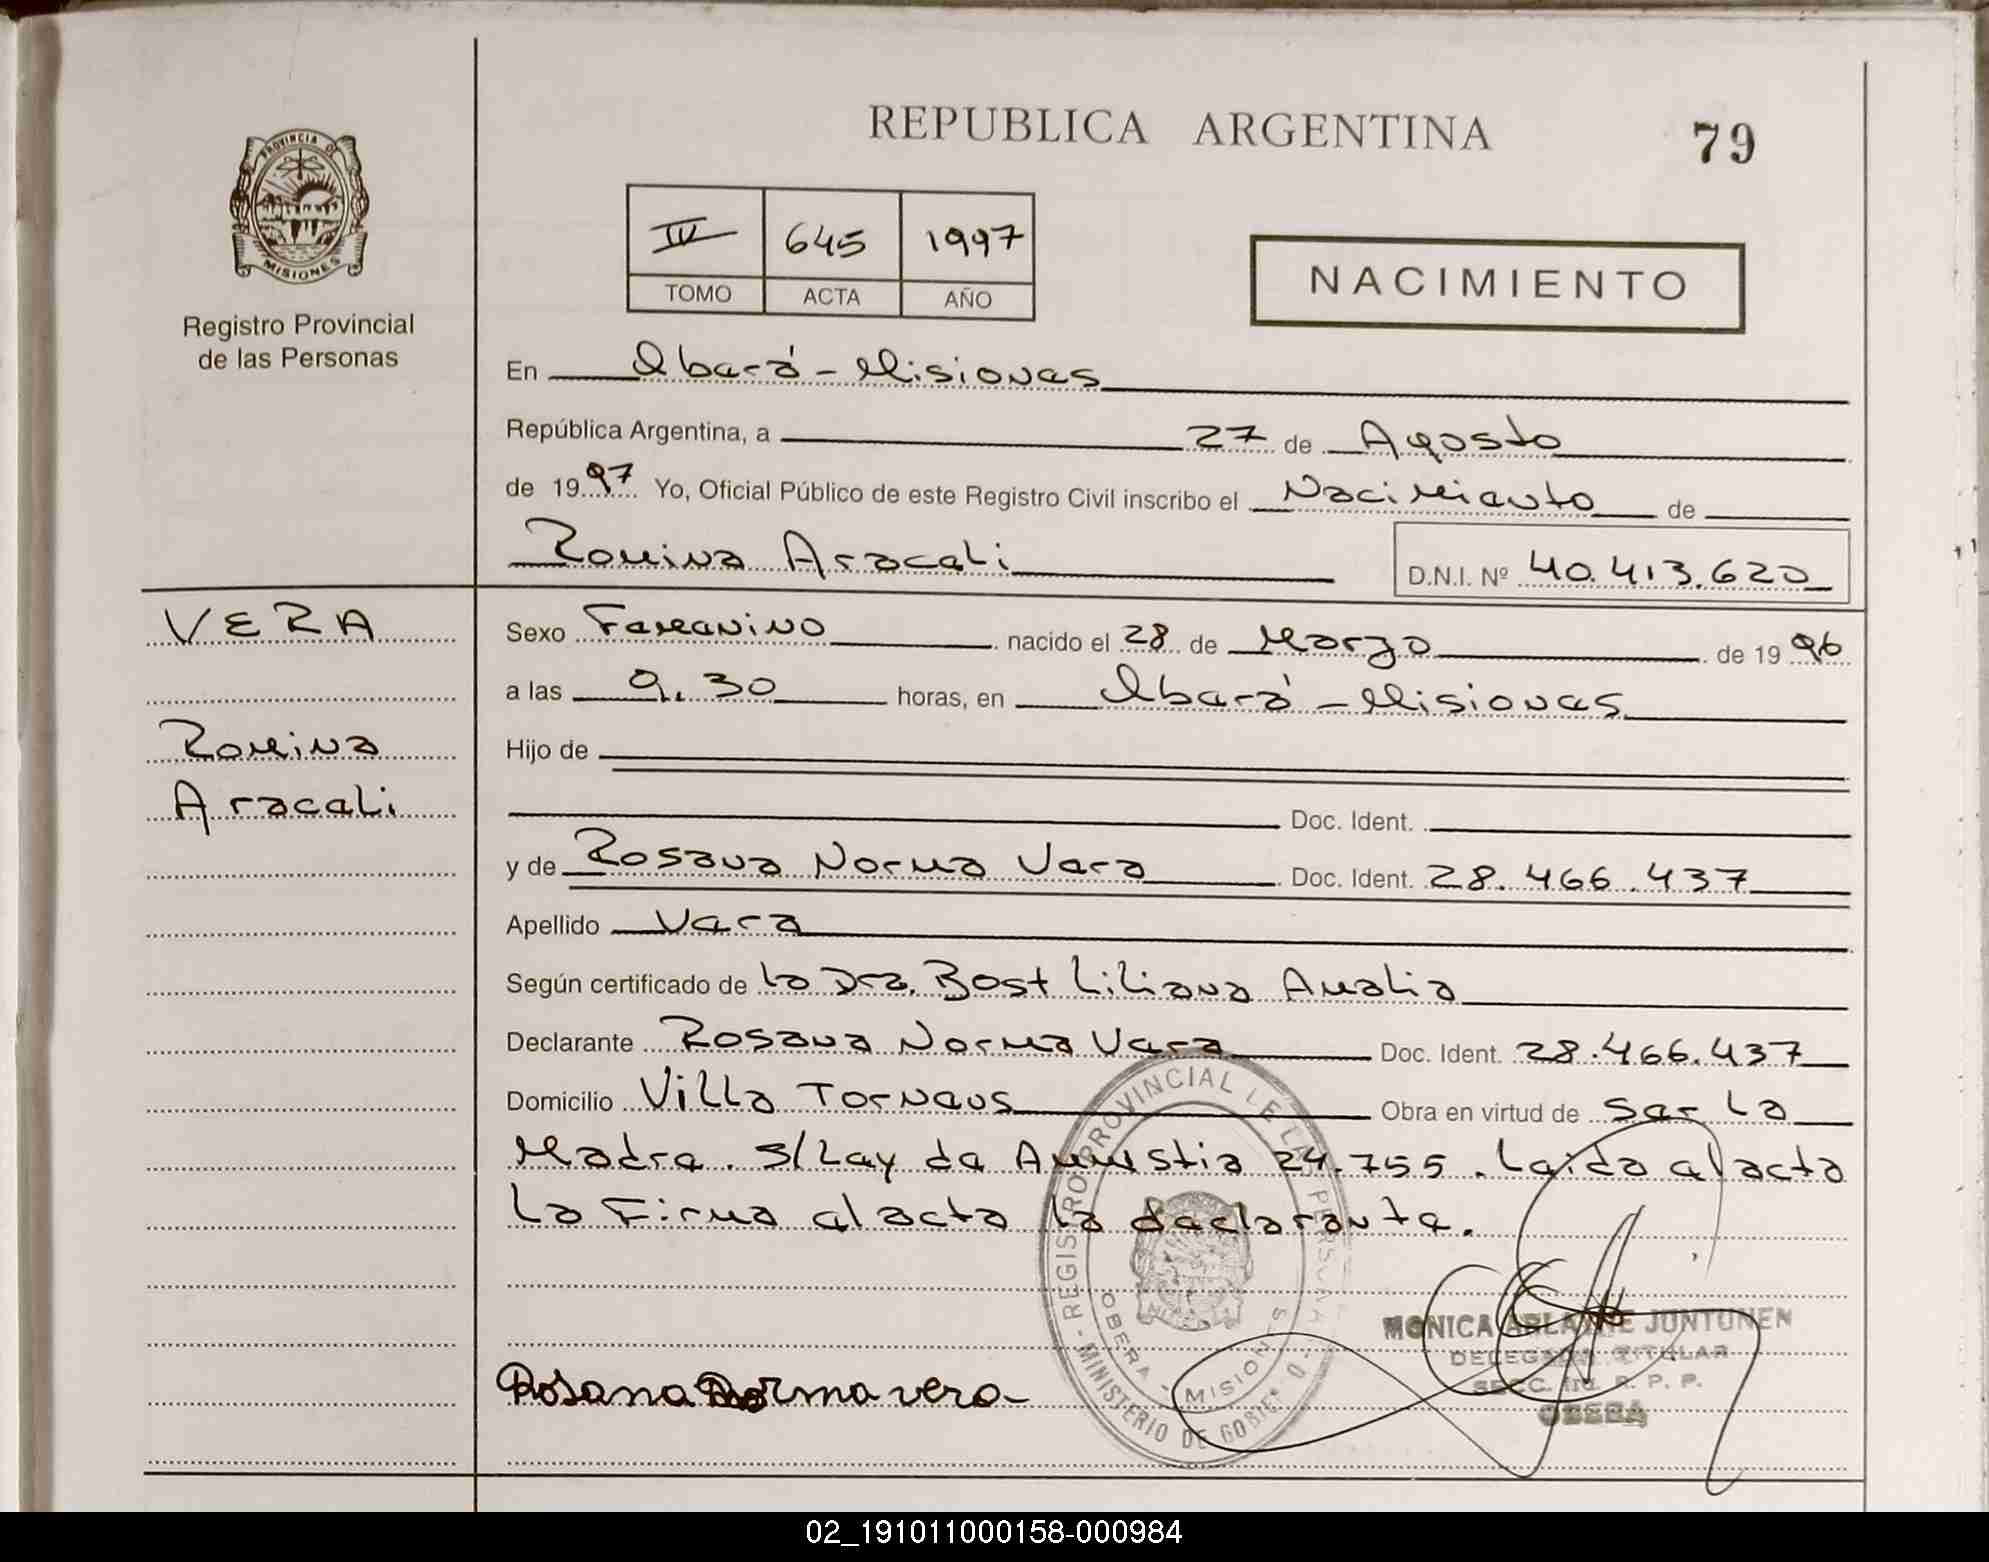 REPUBLICA ARGENTINA
79
PROVINCIA DE
MISIONES
Registro Provincial
de las Personas
IV 645 1997
TOMO ACTA AÑO
NACIMIENTO
En Oberá - Misiones
República Argentina, a 27 de Agosto
de 1997 Yo, Oficial Público de este Registro Civil inscribo el Nacimiento de
Romina Araceli D.N.I. Nº 40.413.620
VERA
Romina
Araceli
Sexo Femenino nacido el 28 de Marzo de 1996
a las 9.30 horas, en Oberá - Misiones
Hijo de
Doc. Ident.
y de Rosana Norma Vera Doc. Ident. 28.466.437
Apellido Vera
Según certificado de la Dra. Bost Liliana Amalia
Declarante Rosana Norma Vera Doc. Ident. 28.466.437
Domicilio Villa Torneus Obra en virtud de ser la
Madre. S/Ley de Amnistia 24.755. Leida el acta
la Firma el acta la declarante.
REGISTRO PROVINCIAL DE LAS PERSONAS
MINISTERIO DE GOBIERNO
OBERA - MISIONES
MONICA ARLANNE JUNTUNEN
DELEGADA TITULAR
SECC. R. P. P.
OBERÁ
Rosana Norma vera
02_191011000158-000984